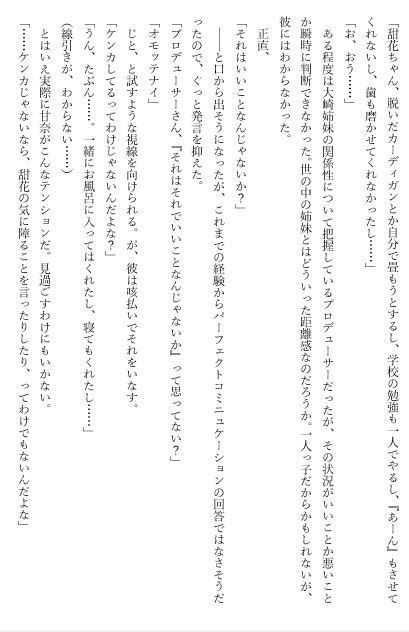 「甜花ちゃん、脱いだカーディガンとか自分で畳もうとするし、学校の勉強も一人でやるし、『あーん』もさせて
くれないし、歯も磨かせてくれなかったし……」
「お、おう……」
ある程度は大崎姉妹の関係性について把握しているプロデューサーだったが、その状況がいいことか悪いこと
か瞬時に判断できなかった。世の中の姉妹とはどういった距離感なのだろうか。一人っ子だからかもしれないが、
彼にはわからなかった。
正直、
「それはいいことなんじゃないか？」
――と口から出そうになったが、これまでの経験からパーフェクトコミュニケーションの回答ではなさそうだ
ったので、ぐっと発言を抑えた。
「プロデューサーさん、『それはそれでいいことなんじゃないか』って思ってない？」
「オモッテナイ」
じと、と試すような視線を向けられる。が、彼は咳払いでそれをいなす。
「ケンカしてるってわけじゃないんだよな？」
「うん、たぶん……。一緒にお風呂に入ってはくれたし、寝てもくれたし……」
（線引きが、わからない……）
とはいえ実際に甘奈がこんなテンションだ。見過ごすわけにもいかない。
「……ケンカじゃないなら、甜花の気に障ることを言ったりしたり、ってわけでもないんだよな」